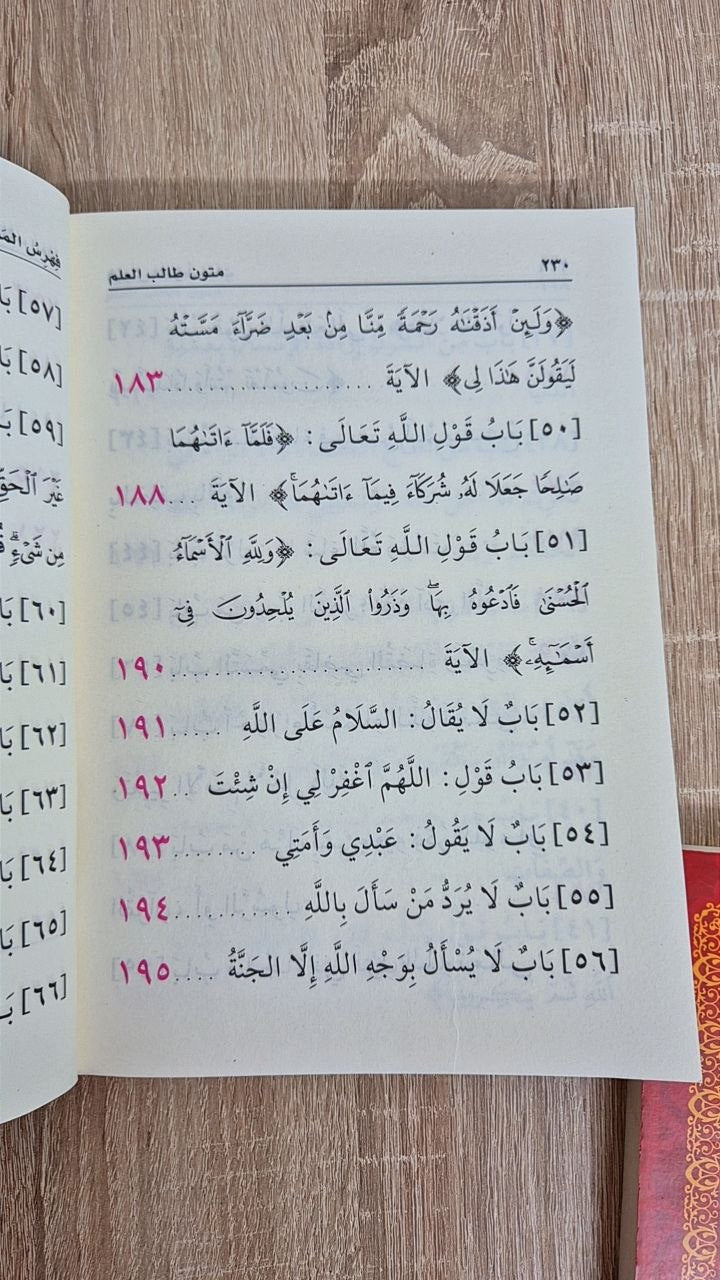 ٢٣٠
متون طالب العلم
﴿وَلَئِنْ أَذَقْنَٰهُ رَحْمَةً مِّنَّا مِنۢ بَعْدِ ضَرَّآءَ مَسَّتْهُ
لَيَقُولَنَّ هَٰذَا لِى﴾ الآيَةَ ..................... ١٨٣
[٥٠] بَابُ قَوْلِ اللَّهِ تَعَالَى: ﴿فَلَمَّآ ءَاتَىٰهُمَا
صَٰلِحًا جَعَلَا لَهُۥ شُرَكَآءَ فِيمَآ ءَاتَىٰهُمَا ۚ﴾ الآيَةَ .... ١٨٨
[٥١] بَابُ قَوْلِ اللَّهِ تَعَالَى: ﴿وَلِلَّهِ الْأَسْمَآءُ
الْحُسْنَىٰ فَادْعُوهُ بِهَا ۖ وَذَرُوا۟ الَّذِينَ يُلْحِدُونَ فِىٓ
أَسْمَٰٓئِهِۦ ۚ﴾ الآيَةَ ............................ ١٩٠
[٥٢] بَابٌ لَا يُقَالُ: السَّلَامُ عَلَى اللَّهِ ...... ١٩١
[٥٣] بَابُ قَوْلِ: اللَّهُمَّ ٱغْفِرْ لِي إِنْ شِئْتَ ... ١٩٢
[٥٤] بَابٌ لَا يَقُولُ: عَبْدِي وَأَمَتِي ......... ١٩٣
[٥٥] بَابٌ لَا يُرَدُّ مَنْ سَأَلَ بِاللَّهِ ............ ١٩٤
[٥٦] بَابٌ لَا يُسْأَلُ بِوَجْهِ اللَّهِ إِلَّا الجَنَّةُ ..... ١٩٥
فِهْرِسُ
[٥٧]
[٥٨]
[٥٩]
غَيْرَ الْحَقِّ
مِن شَىْءٍ ۗ
[٦٠]
[٦١]
[٦٢]
[٦٣]
[٦٤]
[٦٥]
[٦٦]